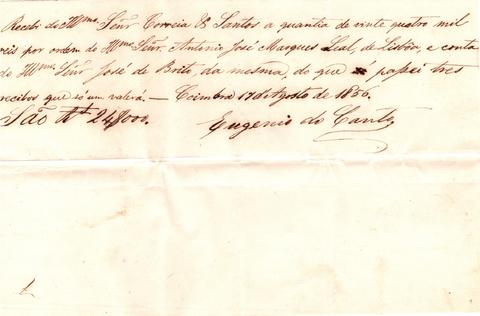 Recebi do Illmo. Señr. Correia & Santos a quantia de vinte quatro mil
reis por ordem do Illmo. Señr. António José Marques Leal, de Lisboa, e conta
do Illmo. Señr. José de Brito, da mesma, do que passei tres
recibos que só um valerá. — Coimbra 17 d'Agosto de 1856.
São Rs 24$000.
Eugenio do Canto